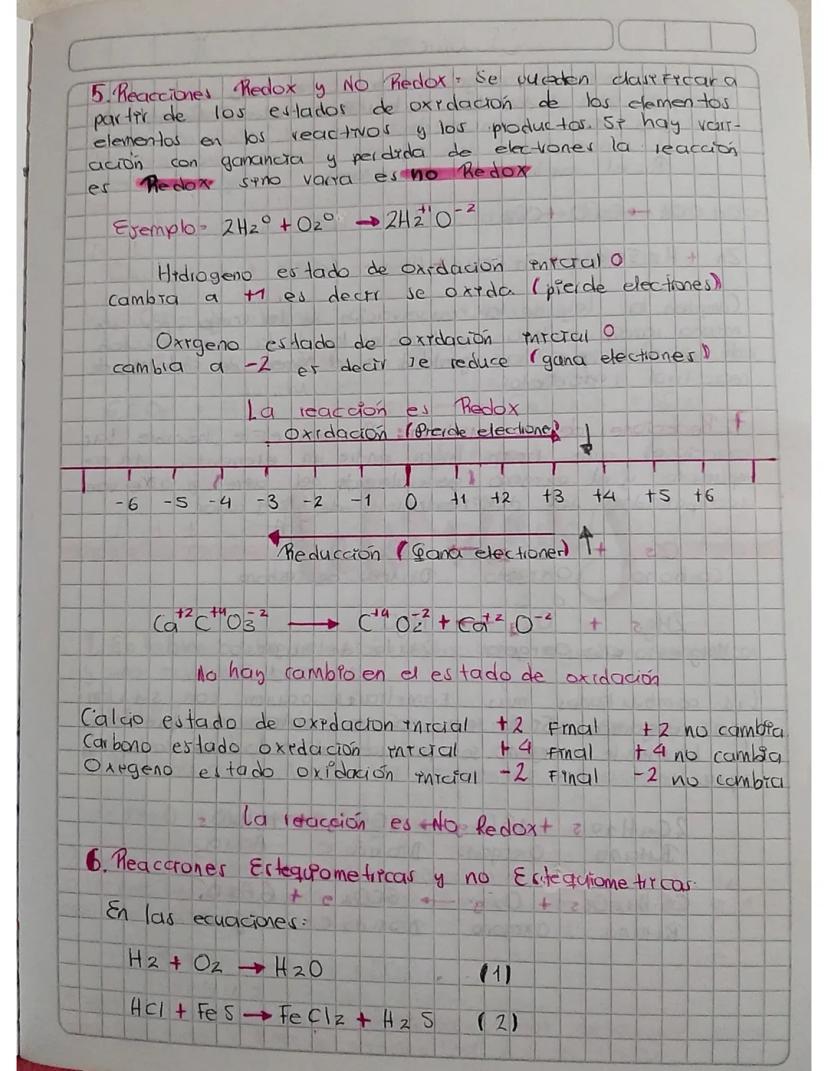 5. Reacciones Redox y No Redox: Se pueden clasificar a
partir de los estados de oxidación de los elementos
elementos en los reactivos y los productos. Si hay vari-
ación con ganancia y perdida de electrones la reacción
es Redox sino varia es no Redox
Ejemplo- 2H2⁰ + O2⁰ → 2H2⁺¹O⁻²
Hidrogeno estado de oxidación inicial 0
cambia a +1 es decir se oxida (pierde electrones)
Oxigeno estado de oxidación inicial 0
cambia a -2 es decir se reduce (gana electrones)
La reacción es Redox
Oxidación (Preide electrones) ↓
-6 -5 -4 -3 -2 -1 0 +1 +2 +3 +4 +5 +6
Reducción (gana electrones) ↑
Ca⁺²C⁺⁴O3⁻² → C⁺⁴O2⁻² + Ca⁺²O⁻²
No hay cambio en el estado de oxidación
Calcio estado de oxidacion inicial +2 Final +2 no cambia
Carbono estado oxidación inicial +4 final +4 no cambia
Oxigeno estado oxidación inicial -2 Final -2 no cambia
La reacción es No Redox
6. Reacciones Estequiometricas y no Estequiometricas.
En las ecuaciones:
H2 + O2 → H2O (1)
HCl + FeS → FeCl2 + H2S (2)